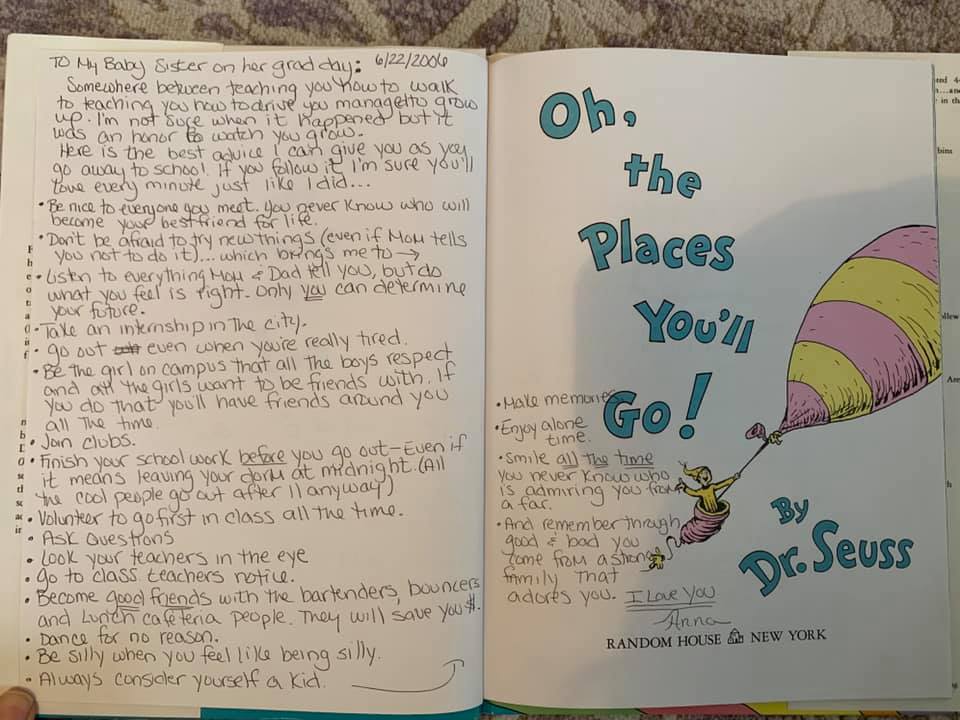 TO My Baby Sister on her grad day: 6/22/2006
Somewhere between teaching you how to walk
to teaching you how to drive you managed to grow
up. I'm not sure when it happened but it
was an honor to watch you grow.
Here is the best advice I can give you as you
go away to school. If you follow it I'm sure you'll
love every minute just like I did...
• Be nice to everyone you meet. You never know who will
become your best friend for life.
• Don't be afraid to try new things (even if Mom tells
you not to do it)... which brings me to →
• Listen to everything Mom & Dad tell you, but do
what you feel is right. Only you can determine
your future.
• Take an internship in the city.
• Go out even when you're really tired.
• Be the girl on campus that all the boys respect
and all the girls want to be friends with. If
you do that you'll have friends around you
all the time.
• Join clubs.
• Finish your school work before you go out - Even if
it means leaving your dorm at midnight. (All
the cool people go out after 11 anyway)
• Volunteer to go first in class all the time.
• Ask Questions
• Look your teachers in the eye
• Go to class teachers notice.
• Become good friends with the bartenders, bouncers
and Lunch cafeteria people. They will save you $.
• Dance for no reason.
• Be silly when you feel like being silly.
• Always consider yourself a kid.
Oh,
the
Places
You'll
Go!
By
Dr. Seuss
• Make memories
• Enjoy alone
time.
• Smile all the time
you never know who
is admiring you from
a far.
• And remember through
good & bad you
come from a strong
family that
adores you. I Love You
Anna
RANDOM HOUSE NEW YORK